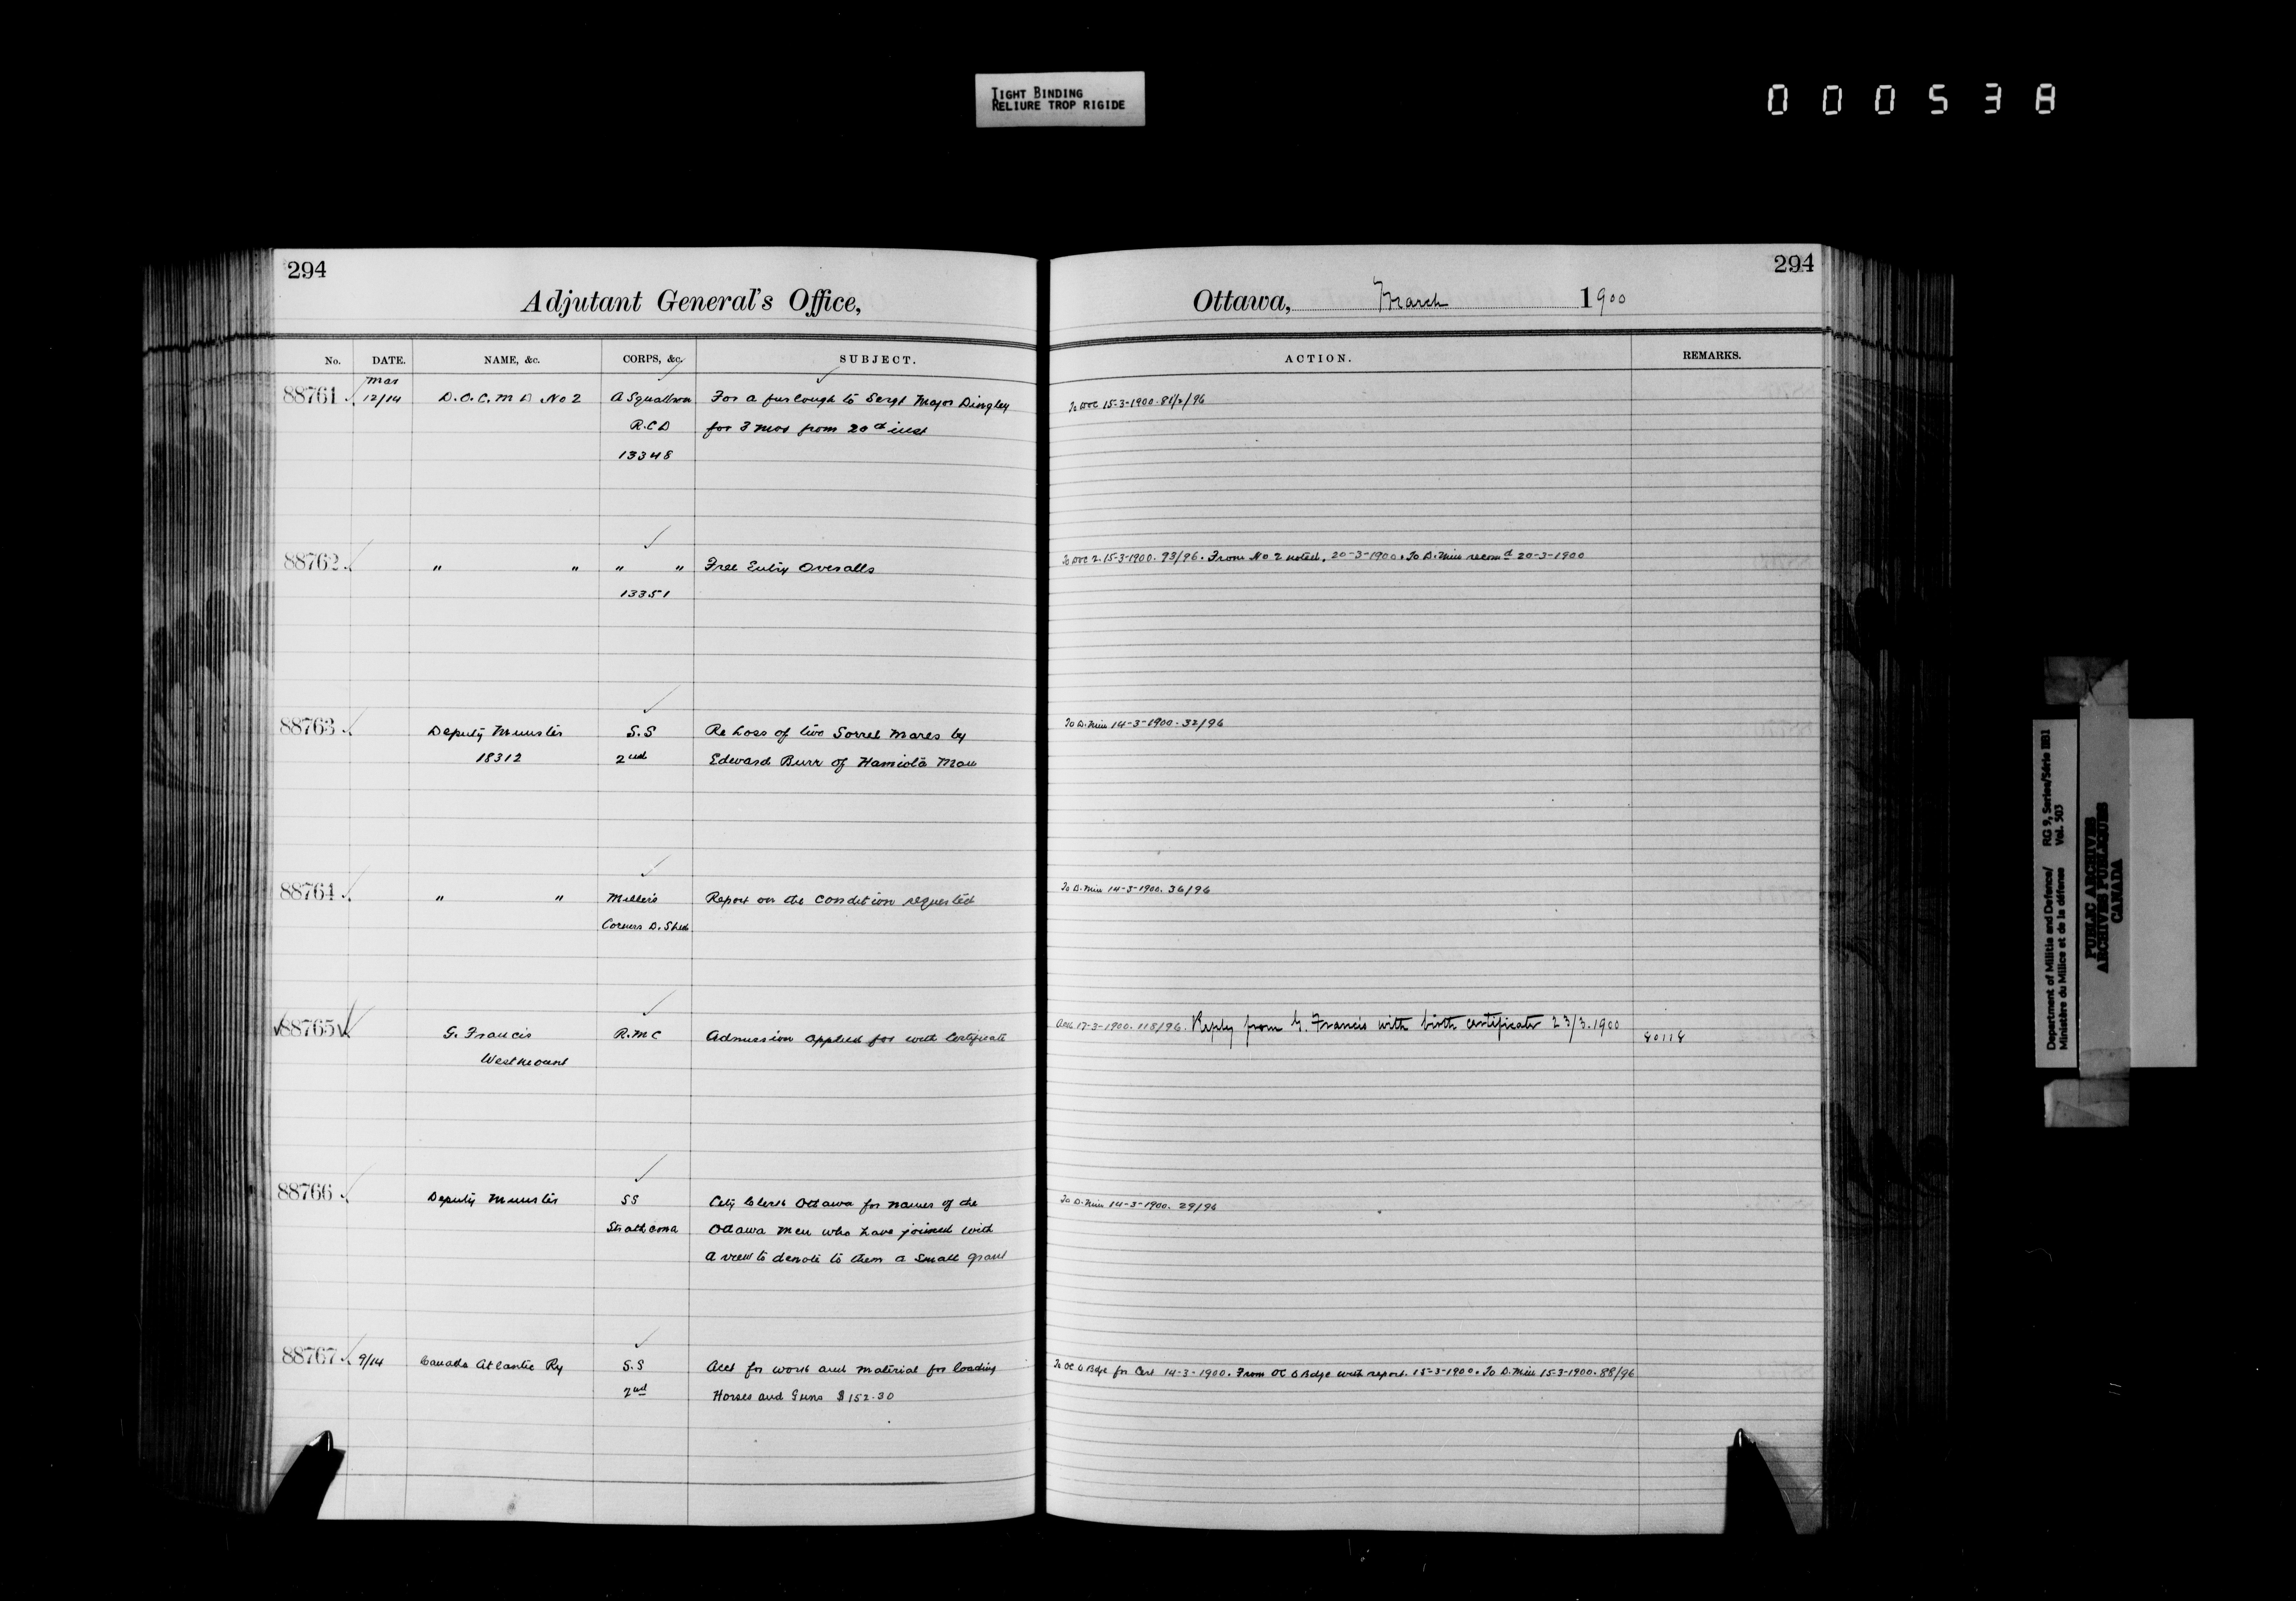 TIGHT BINDING
RELIURE TROP RIGIDE
000538
294
Adjutant General's Office,
No. DATE. NAME, &c. CORPS, &c. SUBJECT.
Mar
88761 12/14 D.O.C. M D No 2 A Squadron For a furlough to Sergt Major Dingley
R.C.D for 3 mos from 20th inst
13348
88762 " " " " Free Entry Overalls
13351
88763 Deputy Minister S.S Re Loss of two Sorrel Mares by
18312 2nd Edward Burr of Hamiota Man
88764 " " Millers Report on the condition requested
Corners D. Shed
88765 G. Francis R.M.C Admission applied for with Certificate
Westmount
88766 Deputy Minister SS City Clerk Ottawa for names of the
Strathcona Ottawa men who have joined with
a view to denote to them a small grant
88767 9/14 Canada Atlantic Ry S.S Acct for work and material for loading
2nd Horses and Guns $152.30
294
Ottawa, March 1900
ACTION. REMARKS.
To DOC 15-3-1900. 81/2/96
To DOC 2. 15-3-1900. 93/96. From No 2 noted. 20-3-1900. To D. Min recomd 20-3-1900
To D. Min 14-3-1900. 32/96
To D. Min 14-3-1900. 36/96
Ans. 17-3-1900. 118/96. Reply from G. Francis with birth certificate 23/3.1900
To D. Min 14-3-1900. 29/96
To OC D Bdge for Cert 14-3-1900. From OC D Bdge with report. 15-3-1900. To D. Min 15-3-1900. 88/96
Department of Militia and Defence/ RG 9, Series/Série IIB1
Ministère du Milice et de la défense Vol. 503
PUBLIC ARCHIVES
ARCHIVES PUBLIQUES
CANADA